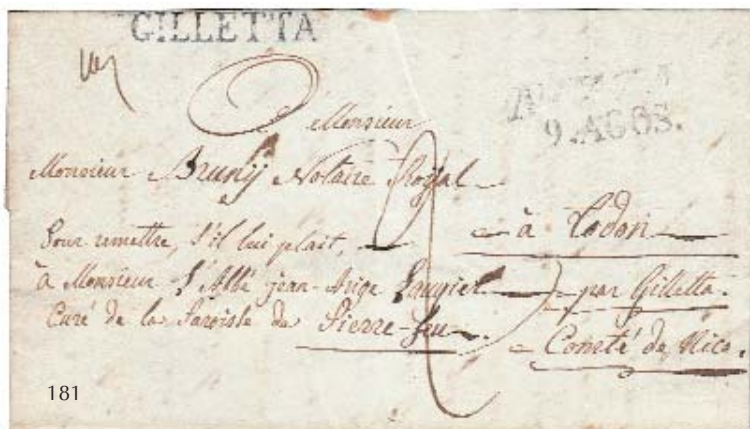 GILLETTA
9. AGOS.
Monsieur
Monsieur Brunÿ Notaire Royal
à Todon
Pour remettre, S'il lui plait,
à Monsieur L'Abbé jean-Ange Laugier
par Gilletta.
Curé de la Paroisse de Pierre-feu.
Comté de Nice.
181